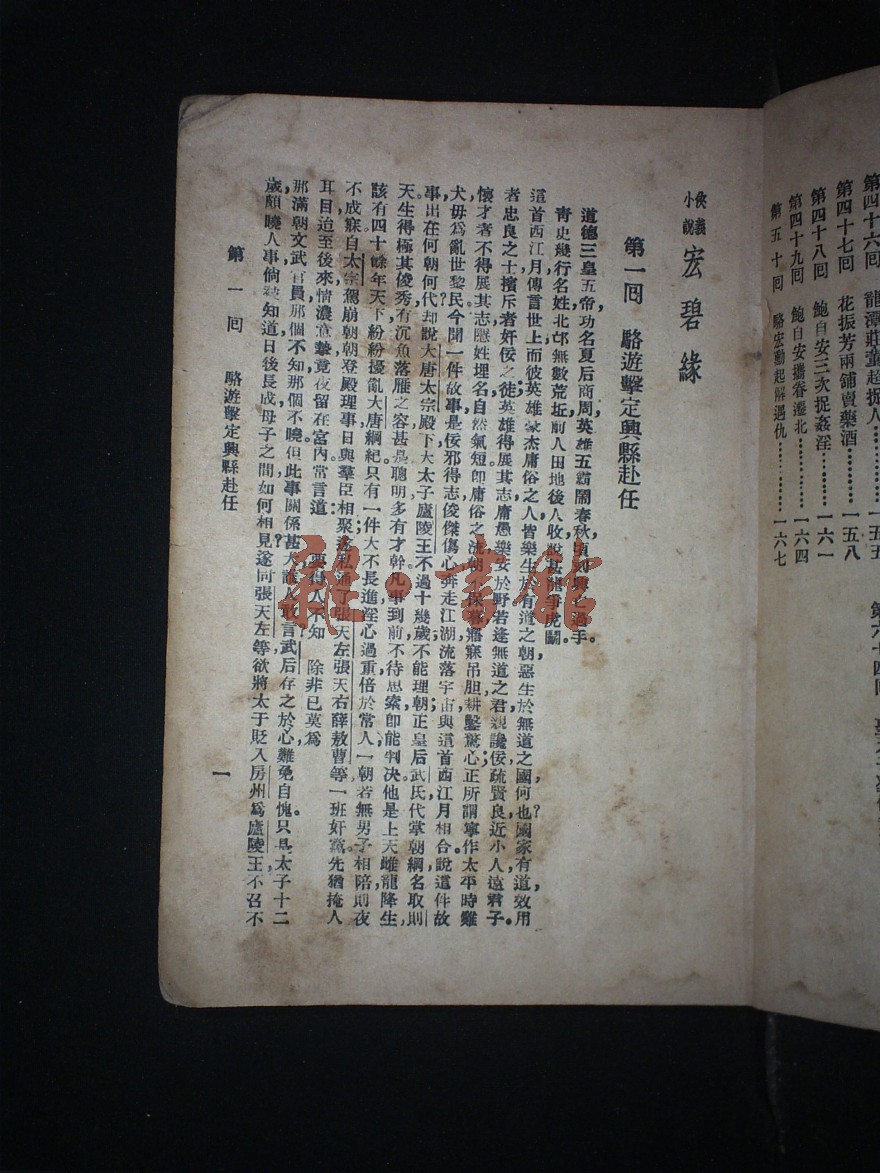 第四十六回　龍潭莊董超捉人………一五五
第四十七回　花振芳兩鋪賣藥酒………一五八
第四十八回　鮑自安三次捉姦淫………一六一
第四十九回　鮑自安攜眷遷北………一六四
第五十回　駱宏勳起解遇仇………一六七
第六十四回
俠義小說　宏碧緣
第一回　駱遊擊定興縣赴任
道德三皇五帝，功名夏后商周，英雄五霸鬧春秋，頃刻興亡過手。
青史幾行名姓，北邙無數荒坵，前人田地後人收，說甚龍爭虎鬭。
這首西江月傳言世上而彼英雄豪杰庸俗之人，皆樂生於有道之朝，惡生於無道之國，何也？國家有道，效用
者忠良之士，擯斥者奸佞之徒，英雄得展其志，庸愚樂安於野；若逢無道之君，親讒佞，疏賢良，近小人，遠君子。
懷才者不得展其志，隱姓埋名，自然氣短，卽庸俗之流，朝不保暮，寤寐吊胆，耕鑿驚心，正所謂寧作太平時雞
犬，毋爲亂世黎民。今聞一件故事，是佞邪得志，俊傑傷心，奔走江湖，流落宇宙，與這首西江月相合，說這件故
事出在何朝何代？却說大唐太宗殿下大太子廬陵王不過十幾歲，不能理朝正，皇后武氏代掌朝綱，名取則
天，生得極其俊秀，有沉魚落雁之容，甚是聰明，多有才幹，凡事到前，不待思索，卽能判决，他是上天雌龍降生，
該有四十餘年天下，紛紛擾亂大唐綱紀，只有一件大不長進，淫心過重，倍於常人，一朝若無男子相陪，則夜
不成寐，自太宗駕崩，朝朝登殿理事，日與羣臣相聚，遂私通了張天左，張天右，薛敖曹等一班奸黨，先猶掩人
耳目，迨至後來，情濃意摯，竟夜留在宮內，常言道：　要得人不知　除非已莫爲
那滿朝文武官員，那個不知，那個不曉，但此事關係甚大，誰人敢言？武后存之於心，難免自愧。只是太子十二
歲，頗曉人事，倘被知道，日後長成，母子之間，如何相見？遂同張天左等欲將太于貶入房州爲廬陵王，不召不
第一回　駱遊擊定興縣赴任　一
雅○書館